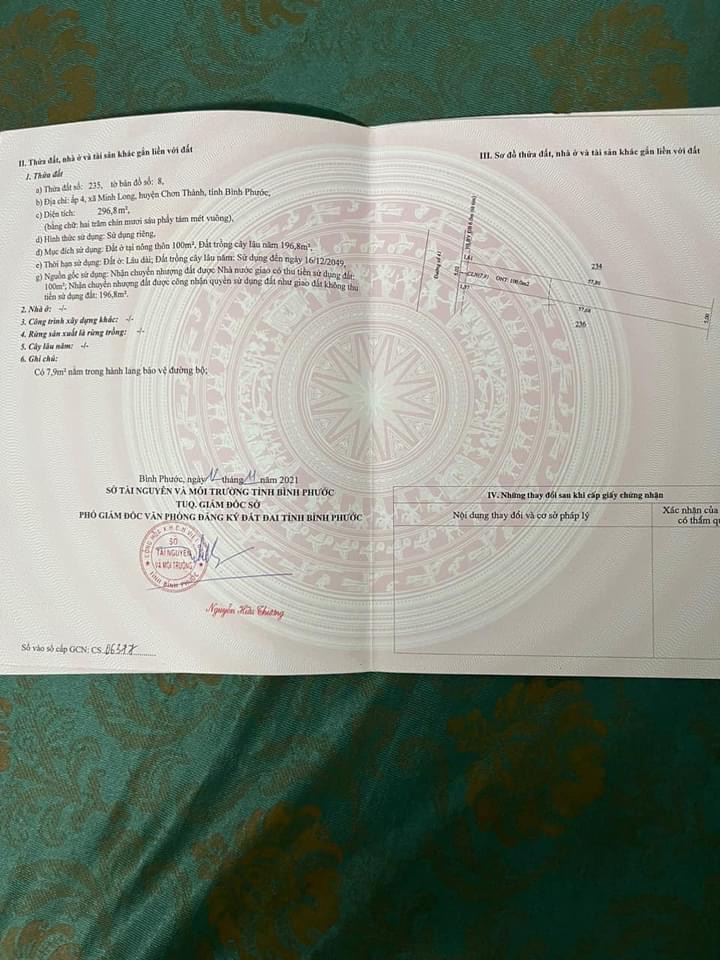 II. Thửa đất, nhà ở và tài sản khác gắn liền với đất
1. Thửa đất
a) Thửa đất số: 235, tờ bản đồ số: 8,
b) Địa chỉ: ấp 4, xã Minh Long, huyện Chơn Thành, tỉnh Bình Phước,
c) Diện tích: 296,8m²,
(bằng chữ: hai trăm chín mươi sáu phẩy tám mét vuông),
d) Hình thức sử dụng: Sử dụng riêng,
đ) Mục đích sử dụng: Đất ở tại nông thôn 100m², Đất trồng cây lâu năm 196,8m²,
e) Thời hạn sử dụng: Đất ở: Lâu dài; Đất trồng cây lâu năm: Sử dụng đến ngày 16/12/2049,
g) Nguồn gốc sử dụng: Nhận chuyển nhượng đất được Nhà nước giao có thu tiền sử dụng đất:
100m²; Nhận chuyển nhượng đất được công nhận quyền sử dụng đất như giao đất không thu
tiền sử dụng đất: 196,8m².
2. Nhà ở: -/-
3. Công trình xây dựng khác: -/-
4. Rừng sản xuất là rừng trồng: -/-
5. Cây lâu năm: -/-
6. Ghi chú:
Có 7,9m² nằm trong hành lang bảo vệ đường bộ;
Bình Phước, ngày 12 tháng 11 năm 2021
SỞ TÀI NGUYÊN VÀ MÔI TRƯỜNG TỈNH BÌNH PHƯỚC
TUQ. GIÁM ĐỐC SỞ
PHÓ GIÁM ĐỐC VĂN PHÒNG ĐĂNG KÝ ĐẤT ĐAI TỈNH BÌNH PHƯỚC
SỞ
TÀI NGUYÊN
VÀ MÔI TRƯỜNG
TỈNH BÌNH PHƯỚC
Nguyễn Hữu Thương
Số vào sổ cấp GCN: CS 06317
III. Sơ đồ thửa đất, nhà ở và tài sản khác gắn liền với đất
Đường số 41
234
ONT: 100.0m2
236
5,00
IV. Những thay đổi sau khi cấp giấy chứng nhận
Nội dung thay đổi và cơ sở pháp lý
Xác nhận của
có thẩm qu